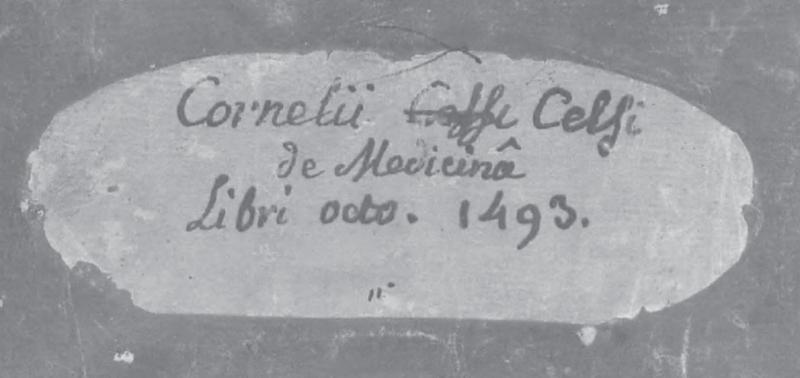 Cornelii Celsi
de Medicinâ
Libri octo. 1493.